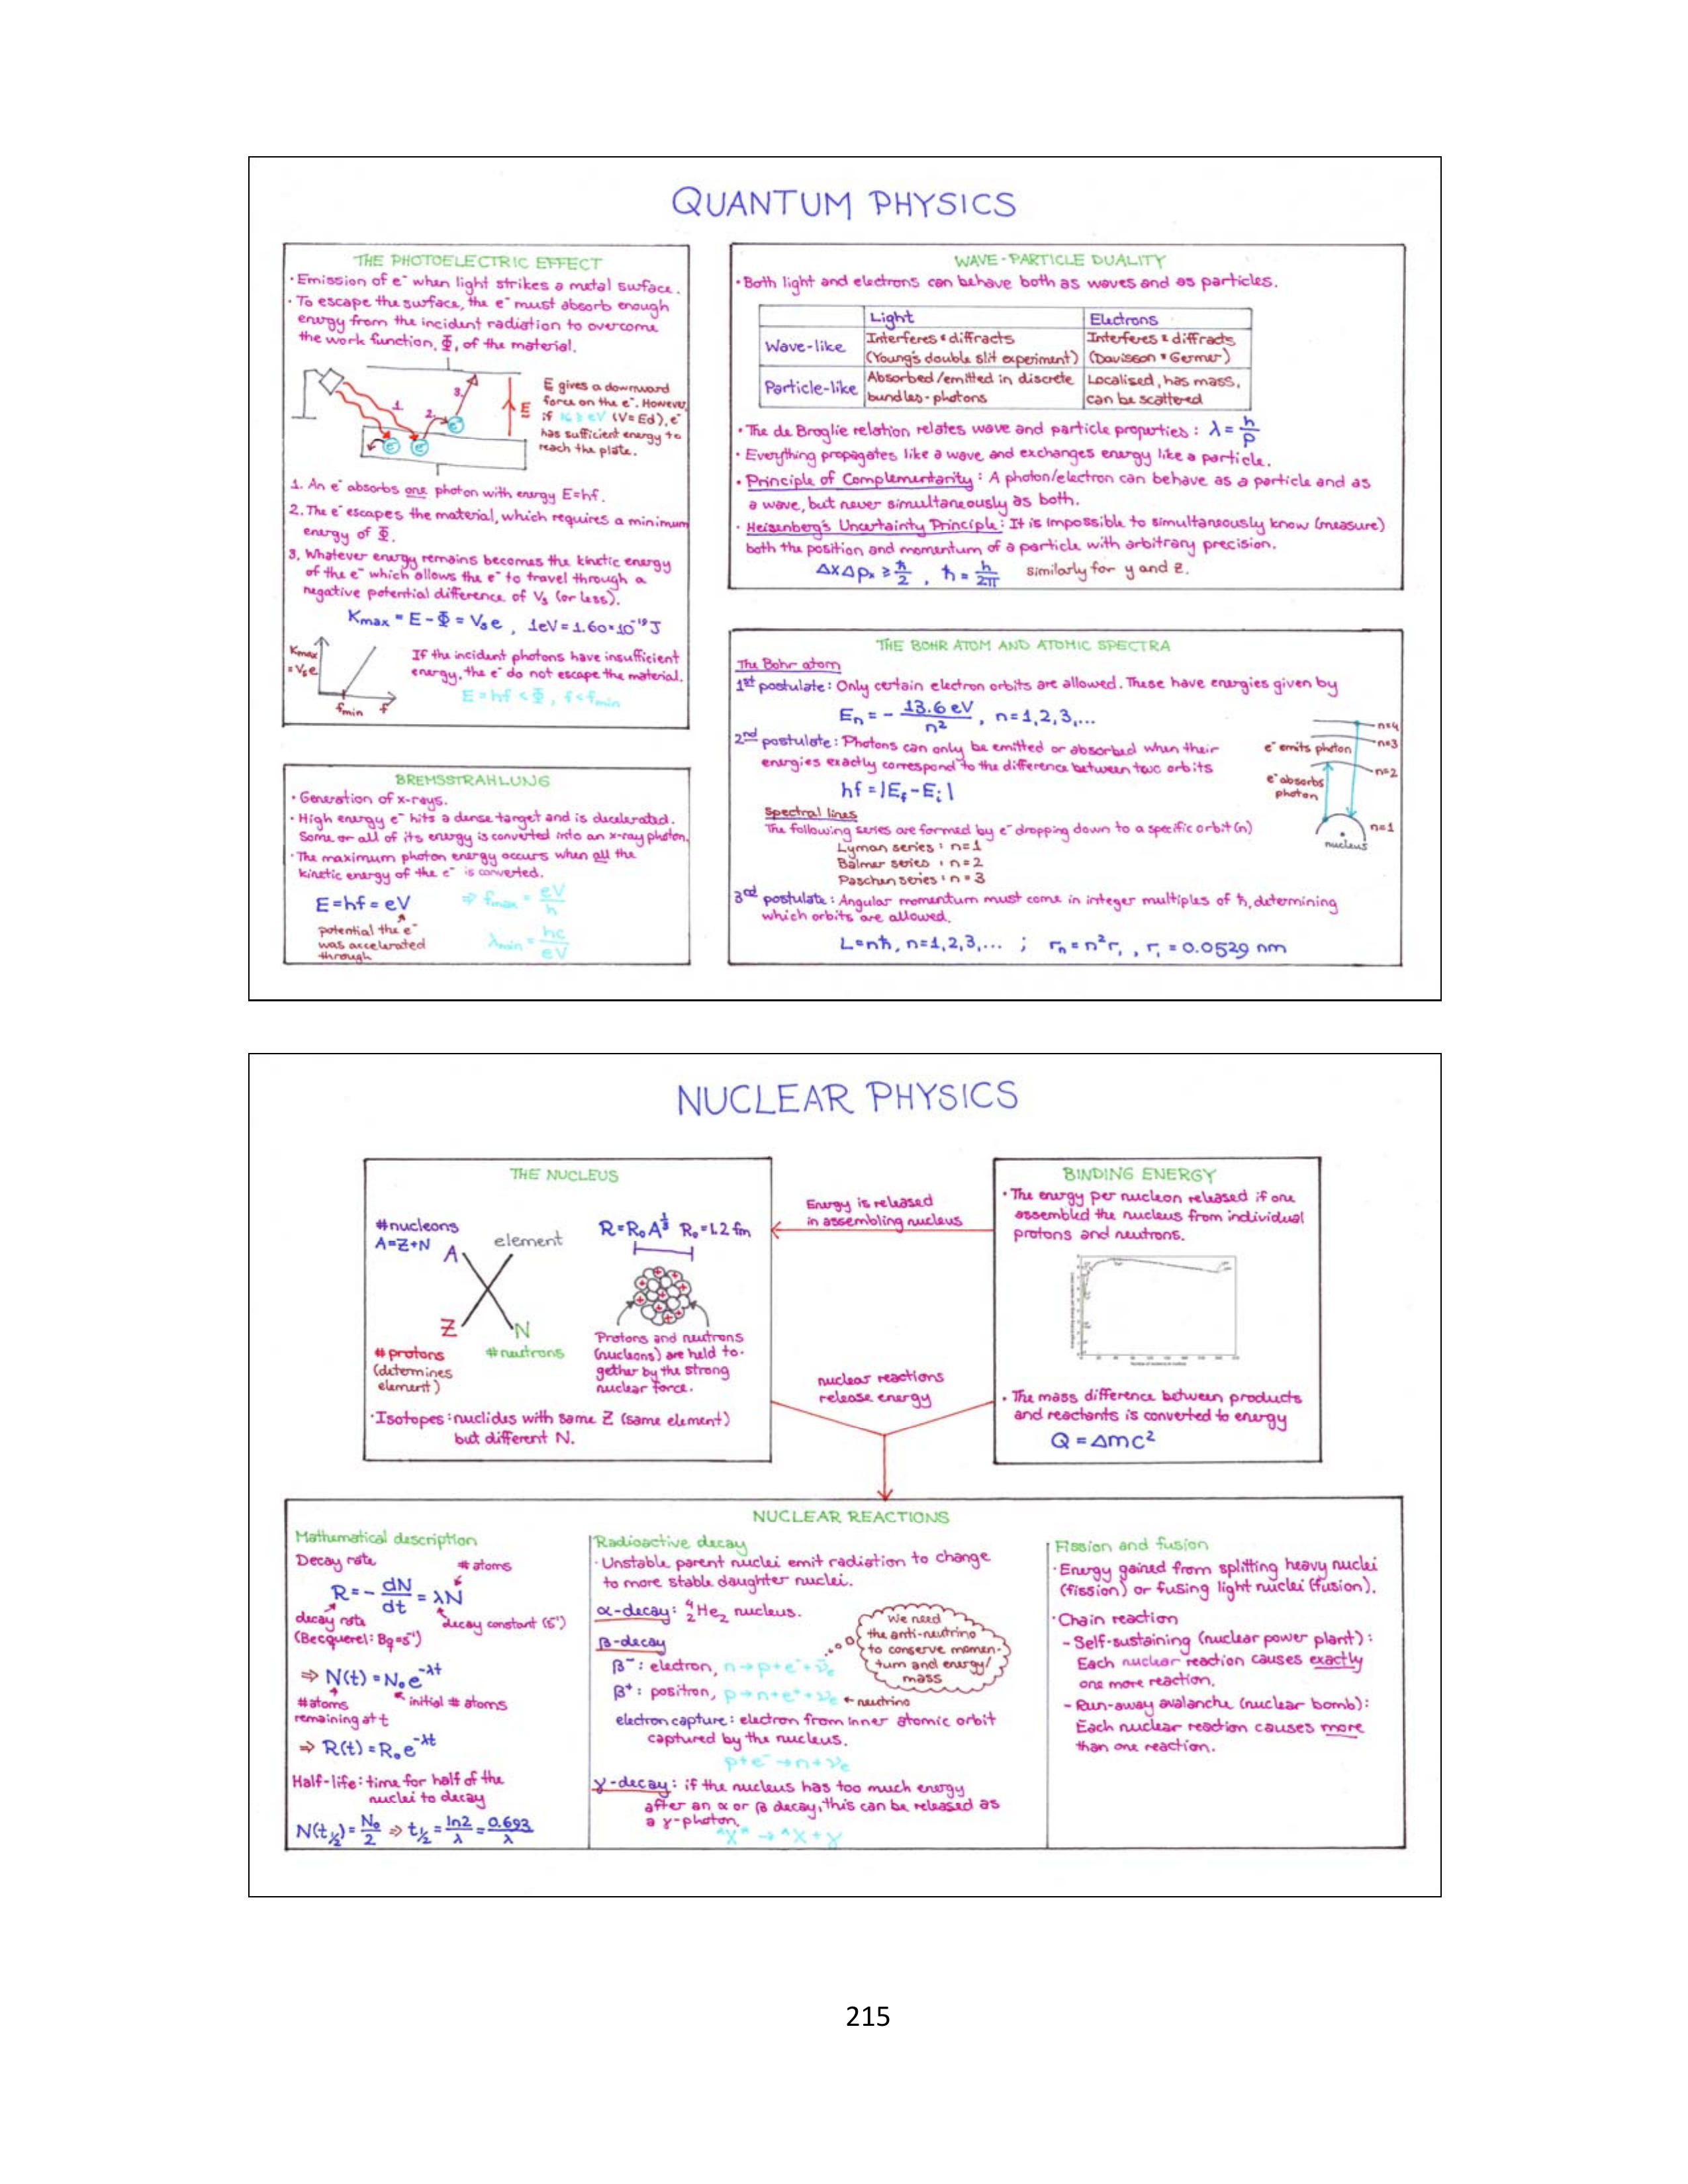 QUANTUM PHYSICS
THE PHOTOELECTRIC EFFECT
• Emission of e⁻ when light strikes a metal surface.
• To escape the surface, the e⁻ must absorb enough
energy from the incident radiation to overcome
the work function, Φ, of the material.
1. 2. 3.
e⁻ e⁻ e⁻
E
E gives a downward
force on the e⁻. However,
if K ≥ eV (V=Ed), e⁻
has sufficient energy to
reach the plate.
1. An e⁻ absorbs one photon with energy E=hf.
2. The e⁻ escapes the material, which requires a minimum
energy of Φ.
3. Whatever energy remains becomes the kinetic energy
of the e⁻ which allows the e⁻ to travel through a
negative potential difference of Vₛ (or less).
Kmax = E - Φ = Vₛe , 1eV = 1.60×10⁻¹⁹J
Kmax
= Vₛe
fmin f
If the incident photons have insufficient
energy, the e⁻ do not escape the material.
E = hf < Φ, f < fmin
BREMSSTRAHLUNG
• Generation of x-rays.
• High energy e⁻ hits a dense target and is decelerated.
Some or all of its energy is converted into an x-ray photon.
• The maximum photon energy occurs when all the
kinetic energy of the e⁻ is converted.
E = hf = eV ⇒ fmax = eV/h
potential the e⁻
was accelerated
through
λmin = hc/eV
WAVE-PARTICLE DUALITY
• Both light and electrons can behave both as waves and as particles.
Light Electrons
Wave-like Interferes & diffracts (Young's double slit experiment) Interferes & diffracts (Davisson & Germer)
Particle-like Absorbed/emitted in discrete bundles - photons Localised, has mass, can be scattered
• The de Broglie relation relates wave and particle properties : λ = h/p
• Everything propagates like a wave and exchanges energy like a particle.
• Principle of Complementarity : A photon/electron can behave as a particle and as
a wave, but never simultaneously as both.
• Heisenberg's Uncertainty Principle : It is impossible to simultaneously know (measure)
both the position and momentum of a particle with arbitrary precision.
ΔxΔpₓ ≥ ħ/2 , ħ = h/2π similarly for y and z.
THE BOHR ATOM AND ATOMIC SPECTRA
The Bohr atom
1st postulate : Only certain electron orbits are allowed. These have energies given by
Eₙ = - 13.6 eV/n² , n = 1,2,3,...
2nd postulate : Photons can only be emitted or absorbed when their
energies exactly correspond to the difference between two orbits
hf = |Ef - Ei|
e⁻ emits photon
e⁻ absorbs
photon
n=4
n=3
n=2
n=1
nucleus
Spectral lines
The following series are formed by e⁻ dropping down to a specific orbit (n)
Lyman series : n=1
Balmer series : n=2
Paschen series : n=3
3rd postulate : Angular momentum must come in integer multiples of ħ, determining
which orbits are allowed.
L = nħ, n=1,2,3,... ; rₙ = n²r₁ , r₁ = 0.0529 nm
NUCLEAR PHYSICS
THE NUCLEUS
#nucleons
A=Z+N
A element
Z N
#protons
(determines
element)
#neutrons
R=R₀A^⅓ R₀=1.2 fm
Protons and neutrons
(nucleons) are held to-
gether by the strong
nuclear force.
• Isotopes : nuclides with same Z (same element)
but different N.
Energy is released
in assembling nucleus
nuclear reactions
release energy
BINDING ENERGY
• The energy per nucleon released if one
assembled the nucleus from individual
protons and neutrons.
• The mass difference between products
and reactants is converted to energy
Q = Δmc²
NUCLEAR REACTIONS
Mathematical description
Decay rate
# atoms
R = - dN/dt = λN
decay rate
(Becquerel: Bq=s⁻¹)
decay constant (s⁻¹)
⇒ N(t) = N₀e^-λt
#atoms
remaining at t
initial # atoms
⇒ R(t) = R₀e^-λt
Half-life : time for half of the
nuclei to decay
N(t½) = N₀/2 ⇒ t½ = ln2/λ = 0.693/λ
Radioactive decay
• Unstable parent nuclei emit radiation to change
to more stable daughter nuclei.
α-decay : ⁴₂He₂ nucleus.
β-decay
β⁻ : electron, n→p+e⁻+ν̄e
β⁺ : positron, p→n+e⁺+νe ← neutrino
We need
the anti-neutrino
to conserve momen-
tum and energy/
mass
electron capture : electron from inner atomic orbit
captured by the nucleus.
p+e⁻→n+νe
γ-decay : if the nucleus has too much energy
after an α or β decay, this can be released as
a γ-photon.
ᴬX* → ᴬX + γ
Fission and fusion
• Energy gained from splitting heavy nuclei
(fission) or fusing light nuclei (fusion).
• Chain reaction
- Self-sustaining (nuclear power plant) :
Each nuclear reaction causes exactly
one more reaction.
- Run-away avalanche (nuclear bomb) :
Each nuclear reaction causes more
than one reaction.
215